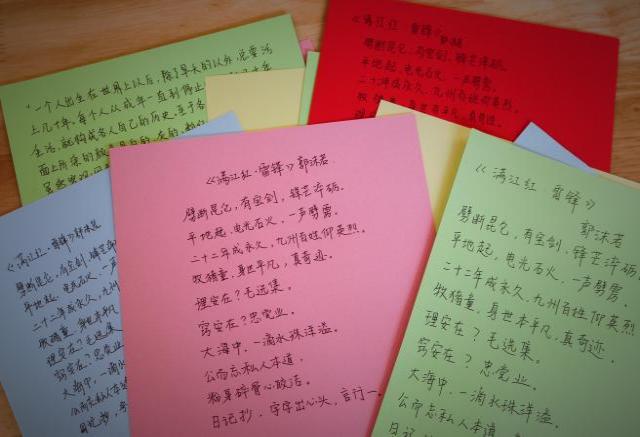 "一个人出生在世界上以后，除了早夭的以外，总要活
上几十年。每个人从成年一直到停止
生活，就构成各人自己的历史。至于各
《满江红 雷锋》
劈断昆仑，有宝剑，锋芒淬砺。
平地起，电光石火，一声劈雳。
二十二年成永久，九州百姓仰英烈。
牧猪童，身世本平凡，真奇迹。
《满江红·雷锋》郭沫若
劈断昆仑，有宝剑，锋芒
平地起，电光石火，一声
二十二年成永久，九州
牧猪童，身世本平凡
理安在？毛选集。
穷安在？忠党业
大海中，一滴水
公而忘私人本道
日记抄，字
《满江红·雷锋》郭沫若
劈断昆仑，有宝剑，锋芒淬砺。
平地起，电光石火，一声劈雳。
二十二年成永久，九州百姓仰英烈。
牧猪童，身世本平凡，真奇迹。
理安在？毛选集。
穷安在？忠党业。
大海中，一滴水珠洋溢。
公而忘私人本道，
粉身碎骨心皎洁。
日记抄，字字出心头，言行一。
《满江红 雷锋》
郭沫若
劈断昆仑，有宝剑，锋芒淬砺
平地起，电光石火，一声劈雳。
二十二年成永久，九州百姓仰英烈
牧猪童，身世本平凡，真奇迹。
理安在？毛选集。
穷安在？忠党业。
大海中，一滴水珠洋溢。
公而忘私人本道
日记抄，字字出心头